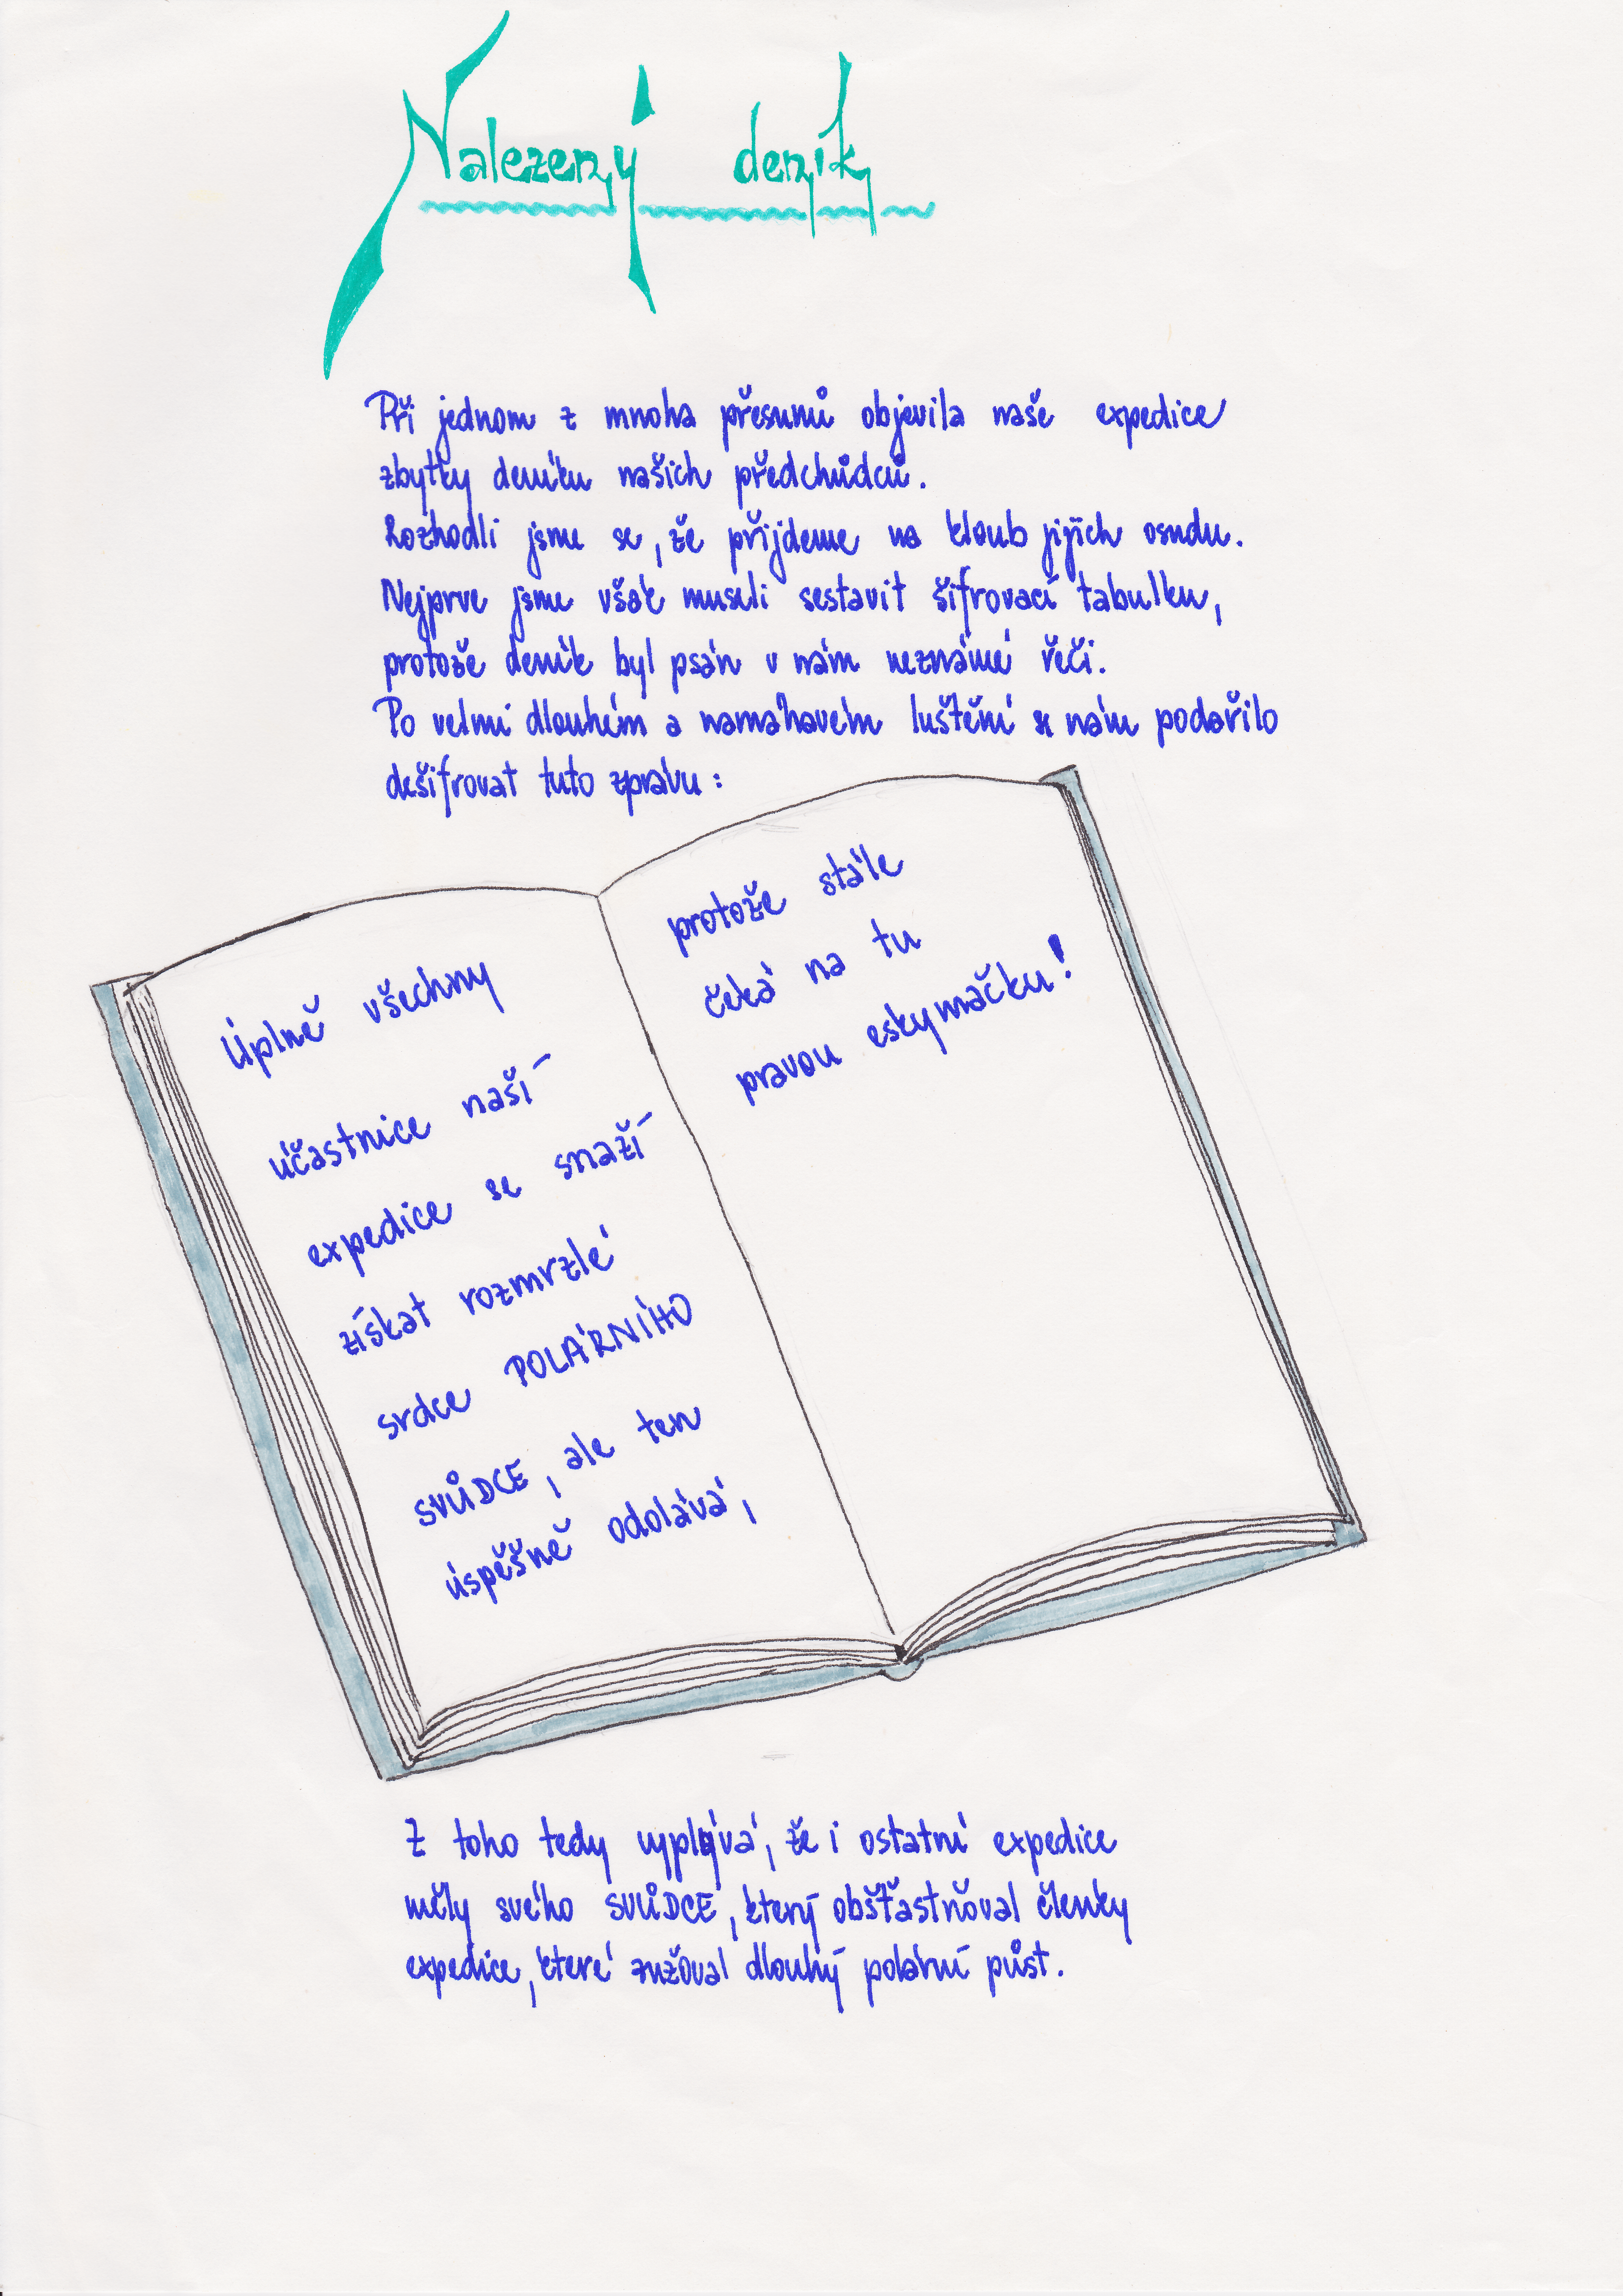 Nalezený deník
Při jednom z mnoha přesunů objevila naše expedice
zbytky deníku našich předchůdců.
Rozhodli jsme se, že přijdeme na kloub jijich osudu.
Nejprve jsme však museli sestavit šifrovací tabulku,
protože deník byl psán v nám neznámé řeči.
Po velmi dlouhém a namáhavém luštění se nám podařilo
dešifrovat tuto zprávu:
Úplně všechny
účastnice naší
expedice se snaží
získat rozmrzlé
srdce POLÁRNÍHO
SVŮDCE, ale ten
úspěšně odolává,
protože stále
čeká na tu
pravou eskymačku!
Z toho tedy vyplývá, že i ostatní expedice
měly svého SVŮDCE, který obšťastňoval členky
expedice, které zužoval dlouhý polární půst.